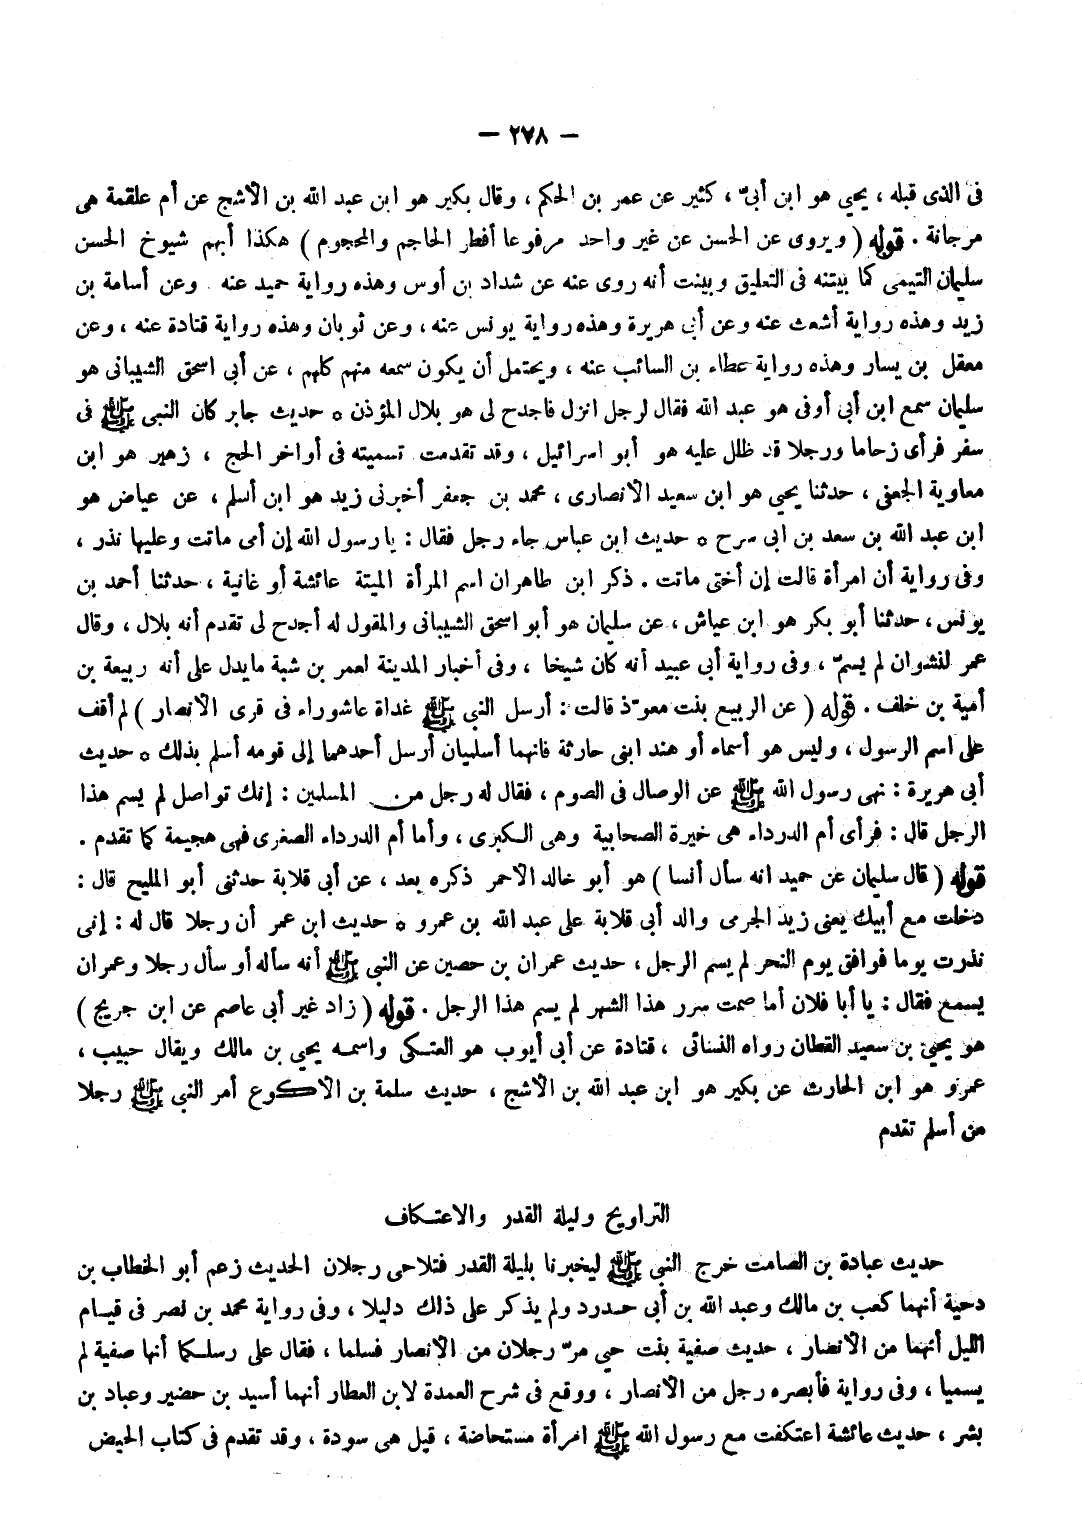 — ٢٧٨ —
فى الذى قبله ، يحيي هو ابن أبىّ ، كثير عن عمر بن الحكم ، وقال بكير هو ابن عبد الله بن الأشج عن أم علقمة هى
مرجانة . قوله ( ويروى عن الحسن عن غير واحد مرفوعا أفطر الحاجم والمحجوم ) هكذا أبهم شيوخ الحسن
سليمان التيمى كما بيتنه فى التعليق وبينت أنه روى عنه عن شداد بن أوس وهذه رواية حميد عنه وعن أسامة بن
زيد وهذه رواية أشعث عنه وعن أبى هريرة وهذه رواية يونس عنه ، وعن ثوبان وهذه رواية قتادة عنه ، وعن
معقل بن يسار وهذه رواية عطاء بن السائب عنه ، ويحتمل أن يكون سمعه منهم كلهم ، عن أبى اسحق الشيبانى هو
سليمان سمع ابن أبى أوفى هو عبد الله فقال لرجل انزل فاجدح لى هو بلال المؤذن ٥ حديث جابر كان النبى ﷺ فى
سفر فرأى زحاما ورجلا قد ظلل عليه هو أبو اسرائيل ، وقد تقدمت تسميته فى أواخر الحج ، زهير هو ابن
معاوية الجعفى ، حدثنا يحيي هو ابن سعيد الانصارى ، محمد بن جعفر أخبرنى زيد هو ابن أسلم ، عن عياض هو
ابن عبد الله بن سعد بن ابى سرح ٥ حديث ابن عباس جاء رجل فقال : يا رسول الله إن أمى ماتت وعليها نذر ،
وفى رواية أن امرأة قالت إن أختى ماتت . ذكر ابن طاهر ان اسم المرأة الميتة عائشة أو غانية ، حدثنا أحمد بن
يونس ، حدثنا أبو بكر هو ابن عياش ، عن سليمان هو أبو اسحق الشيبانى والمقول له أجدح لى تقدم أنه بلال ، وقال
عمر لنشوان لم يسمّ ، وفى رواية أبى عبيد أنه كان شيخا ، وفى أخبار المدينة لعمر بن شبة ما يدل على أنه ربيعة بن
أمية بن خلف . قوله ( عن الربيع بنت معوّذ قالت : أرسل النبى ﷺ غداة عاشوراء فى قرى الانصار ) لم أقف
على اسم الرسول ، وليس هو أسماء أو هند ابنى حارثة فانهما أسلميان أرسل أحدهما إلى قومه أسلم بذلك ٥ حديث
أبى هريرة : نهى رسول الله ﷺ عن الوصال فى الصوم ، فقال له رجل من المسلمين : إنك تواصل لم يسم هذا
الرجل قال : فرأى أم الدرداء هى خيرة الصحابية وهى الكبرى ، وأما أم الدرداء الصغرى فهى هجيمة كما تقدم .
قوله ( قال سليمان عن حميد انه سأل أنسا ) هو أبو خالد الأحمر ذكره بعد ، عن أبى قلابة حدثنى أبو المليح قال :
دخلت مع أبيك يعنى زيد الجرمى والد أبى قلابة على عبد الله بن عمرو ٥ حديث ابن عمر أن رجلا قال له : إنى
نذرت يوما فوافق يوم النحر لم يسم الرجل ، حديث عمران بن حصين عن النبى ﷺ أنه سأله أو سأل رجلا وعمران
يسمع فقال : يا أبا فلان أما صمت سرر هذا الشهر لم يسم هذا الرجل . قوله ( زاد غير أبى عاصم عن ابن جريج )
هو يحيى بن سعيد القطان رواه النسائى ، قتادة عن أبى أيوب هو العتكى واسمه يحيي بن مالك ويقال حبيب ،
عمرو هو ابن الحارث عن بكير هو ابن عبد الله بن الأشج ، حديث سلمة بن الأكوع أمر النبى ﷺ رجلا
من أسلم تقدم
التراويح وليلة القدر والاعتكاف
حديث عبادة بن الصامت خرج النبى ﷺ ليخبرنا بليلة القدر فتلاحى رجلان الحديث زعم أبو الخطاب بن
دحية أنهما كعب بن مالك وعبد الله بن أبى حدرد ولم يذكر على ذلك دليلا ، وفى رواية محمد بن نصر فى قيام
الليل أنهما من الأنصار ، حديث صفية بنت حيي مرّ رجلان من الانصار فسلما ، فقال على رسلكما أنها صفية لم
يسميا ، وفى رواية فأبصره رجل من الانصار ، ووقع فى شرح العمدة لابن العطار أنهما أسيد بن حضير وعباد بن
بشر ، حديث عائشة اعتكفت مع رسول الله ﷺ امرأة مستحاضة ، قيل هى سودة ، وقد تقدم فى كتاب الحيض